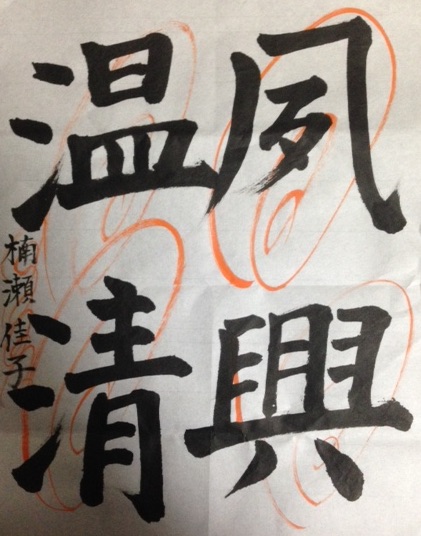 夙興
温清
楠瀬佳子